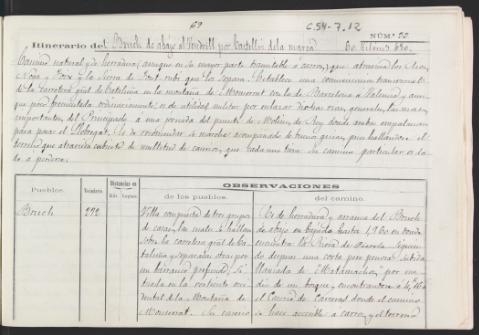 69
C.54-7.12
NÚM.º 50.
Itinerario del Bruch de abajo al Vendrell por Castellví de la marca 60 Kilom.s 680.
Camino natural y de herradura, aunque en su mayor parte transitable á carros, que atraviesa los rios
Noya y Foix y la Sierra de Font-rubí que los separa. Establece una comunicacion transversal
de la carretera gral de Cataluña en la montaña de Monserrat con la de Barcelona á Valencia, y aun
que poco frecuentada ordinariamente es de utilidad militar por enlazar dichas vias generales, las mas
importantes del Principado á una jornada del puente de Molins de Rey donde antes empalman
para pasar el Llobregat. Es de recomendar se marche acompañado de buenos guias, pues hallandose el
terreno que atraviesa cubierto de multitud de caserios, que cada uno tiene su camino particular es fa
cil perderse.
Pueblos.
Vecindario
Distancias en
Kils.
Leguas.
OBSERVACIONES
de los pueblos.
del camino.
Bruch
272
Villa compuesta de tres grupos
de casas, las cuales se hallan
sobre la carretera gral de Ca-
taluña y separadas otras por
un barranco profundo. Si
tuada en la vertiente occi-
dental de la Montaña de
Monserrat. Su caserio
Es de herradura y arranca del Bruch
de abajo en bajada hasta 1,960 en donde
encuentra la Riera de Pierola siguien
do despues una corta pero penosa subida
llamada de Matamachos, por me
dio de un bosque y encontrandose á 4,160
el Camino de Carreras donde el camino
se hace accesible á carros, y el terreno